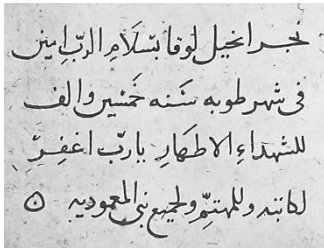 نجز انجيل لوقا بسَلَامِ الربّ امين
فى شهر طوبه سَنه خمسَين والف
للشهداءِ الاطهَارِ يارَبّ اغفِرْ
لكاتبه وللمهتمِّ ولجميع بنى المعموديه